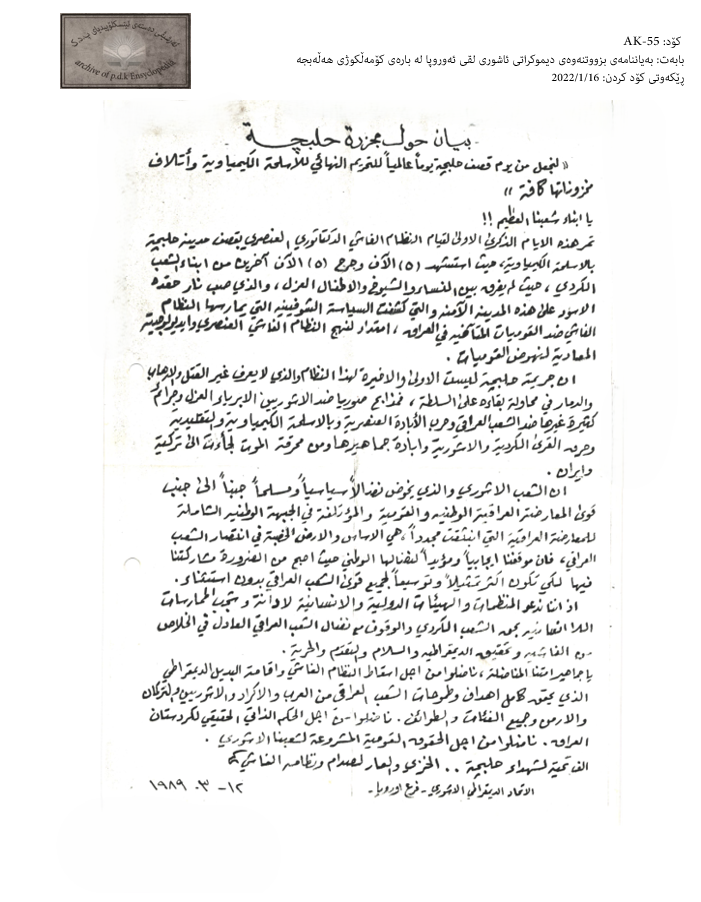 کۆد: AK-55
بابەت: بەیاننامەی بزووتنەوەی دیموکراتی ئاشوری لقی ئەوروپا لە بارەی کۆمەڵکوژی هەڵەبجە
ڕێکەوتی کۆد کردن: 2022/1/16
archive of p.d.k Encyclopedia
بيان حول مجزرة حلبجة
« لنجعل من يوم قصف حلبجة يوماً عالمياً للتحريم النهائي للأسلحة الكيمياوية وأتلاف
مخزوناتها كافة »
يا ابناء شعبنا العظيم !!
تمر هذه الايام الذكرى الاولى لقيام النظام الفاشي الدكتاتوري العنصري بقصف مدينة حلبجة
بالاسلحة الكيمياوية، حيث استشهد (٥) الآف وجرح (٥) الآف آخرين من ابناء الشعب
الكردي ، حيث لم يفرق بين النساء والشيوخ والاطفال العزل ، والذي صب نار حقده
الاسود على هذه المدينة الآمنة والتي كشفت السياسة الشوفينية التي يمارسها النظام
الفاشي ضد القوميات المتآخية في العراق ، امتداد لنهج النظام الفاشي العنصري وايديولوجيته
المعادية لنهوض القوميات .
ان جريمة حلبجة ليست الاولى والاخيرة لهذا النظام والذي لا يعرف غير القتل والارهاب
والدمار في محاولة بقاءه على السلطة ، فمذابح صوريا ضد الاشوريين الابرياء العزل وجرائم
كثيرة غيرها ضد الشعب العراقي وحرب الأبادة العنصرية وبالاسلحة الكيمياوية والتقليدية
وحرق القرى الكردية والاشورية وابادة جماهيرها ومن محرقة الموت لجأت الى تركية
وايران .
ان الشعب الاشوري والذي يخوض نضالاً سياسياً ومسلحاً جنباً الى جنب
قوى المعارضة العراقية الوطنية والقومية والمؤتلفة في الجبهة الوطنية الشاملة
للمعارضة العراقية التي انبثقت مجدداً، هي الاساس والارض الخصبة في انتصار الشعب
العراقي ، فان موقفنا ايجابياً ومؤيداً لنضالها الوطني حيث اصبح من الضرورة مشاركتنا
فيها لكي تكون اكثر تمثيلاً وتوسيعاً لجميع قوى الشعب العراقي بدون استثناء .
اذ اننا ندعو المنظمات والهيئات الدولية والانسانية لادانة وشجب الممارسات
اللا انسانية بحق الشعب الكردي والوقوف مع نضال الشعب العراقي العادل في الخلاص
من الفاشية وتحقيق الديمقراطية والسلام والتقدم والحرية .
يا جماهيرنا المناضلة ، ناضلوا من اجل اسقاط النظام الفاشي واقامة البديل الديمقراطي
الذي يحقق كامل اهداف وطموحات الشعب العراقي من العرب والاكراد والاشوريين والتركمان
والارمن وجميع الفئات والطوائف . ناضلوا من اجل الحكم الذاتي الحقيقي لكردستان
العراق . ناضلوا من اجل الحقوق القومية المشروعة لشعبنا الاشوري .
الف تحية لشهداء حلبجة . . الخزي والعار لصدام ونظامه الفاشي
الاتحاد الديمقراطي الاشوري - فرع اوروبا -
١٢ - ٣ - ١٩٨٩